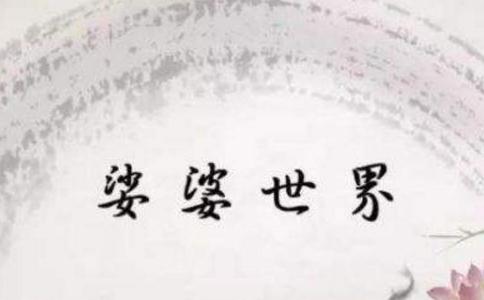 娑婆世界